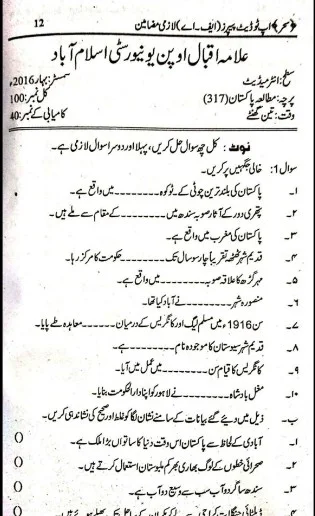 ﴿سحر﴾ اپ ٹو ڈیٹ پیپرز (ایف۔اے) لازمی مضامین 12
علامہ اقبال اوپن یونیورسٹی اسلام آباد
سطح: انٹرمیڈیٹ سمسٹر: بہار 2016ء
پرچہ: مطالعہ پاکستان (317) کل نمبر: 100
وقت: تین گھنٹے کامیابی کے نمبر: 40
نوٹ: کل چھ سوال حل کریں، پہلا اور دوسرا سوال لازمی ہے۔
سوال 1: خالی جگہیں پر کریں۔
۱۔ پاکستان کی بلند ترین چوٹی کے۔ٹو کوہ ۔۔۔۔۔۔۔۔ میں واقع ہے۔
۲۔ پتھری دور کے آثار صوبہ سندھ میں ۔۔۔۔۔۔۔۔ کے مقام سے ملے ہیں۔
۳۔ پاکستان کی مغرب میں واقع ہے۔
۴۔ قدیم شہر ٹھٹھہ تقریباً چار سو سال تک ۔۔۔۔۔۔۔۔ حکومت کا مرکز رہا۔
۵۔ مہر گڑھ کا علاقہ صوبہ ۔۔۔۔۔۔۔۔ میں واقع ہے۔
۶۔ منصورہ شہر ۔۔۔۔۔۔۔۔ نے آباد کیا تھا۔
۷۔ سن 1916ء میں مسلم لیگ اور کانگریس کے درمیان ۔۔۔۔۔۔ معاہدہ طے پایا۔
۸۔ قدیم شہر سیوستان کا موجودہ نام ۔۔۔۔۔۔۔۔ ہے۔
۹۔ کانگریس کا قیام سن ۔۔۔۔۔۔۔۔ میں عمل میں آیا۔
۱۰۔ مغل بادشاہ ۔۔۔۔۔۔۔۔ نے لاہور کو اپنا دارالحکومت بنایا۔
ب۔ ذیل میں دیئے گئے بیانات کے سامنے نشان لگا کو غلط اور صحیح کی نشاندہی کریں۔
۱۔ آبادی کے لحاظ سے پاکستان اس وقت دنیا کا ساتواں بڑا ملک ہے۔ ()
۲۔ صحرائی خطوں کے لوگ بھاری بھرکم ملبوسات استعمال کرتے ہیں۔ ()
۳۔ سندھ ساگر دو آب سب سے وسیع دو آب ہے۔ ()